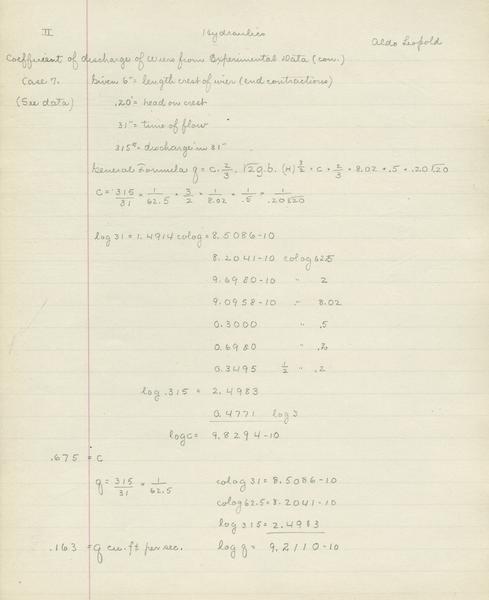 II Hydraulics Aldo Leopold
Coefficient of discharge of Wiers from Experimental Data (con.)
Case 7. Given 6" = length crest of wier (end contractions)
(See data) .20' = head on crest
31" = time of flow
315# = discharge in 31"
General Formula q = c · 2/3 · √2g · b · (H)^3/2 = c × 2/3 × 8.02 × .5 × .20√.20
C = 315/31 × 1/62.5 × 3/2 × 1/8.02 × 1/.5 × 1/.20√.20
log 31 = 1.4914 colog = 8.5086-10
8.2041-10 colog 62.5
9.6980-10 " 2
9.0958-10 " 8.02
0.3000 " .5
0.6980 " .2
0.3495 1/2 " .2
log .315 = 2.4983
0.4771 log 3
log c = 9.8294-10
.675 = c
q = 315/31 × 1/62.5 colog 31 = 8.5086-10
colog 62.5 = 8.2041-10
log 315 = 2.4983
.163 = q cu. ft per sec. log q = 9.2110-10